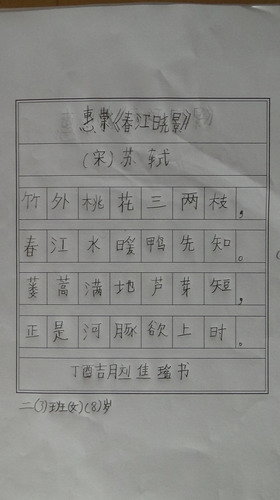 惠崇《春江晓景》
(宋)苏轼
竹外桃花三两枝,
春江水暖鸭先知。
蒌蒿满地芦芽短,
正是河豚欲上时。
丁酉吉月刘佳瑞书
二(3)班(女)(8)岁